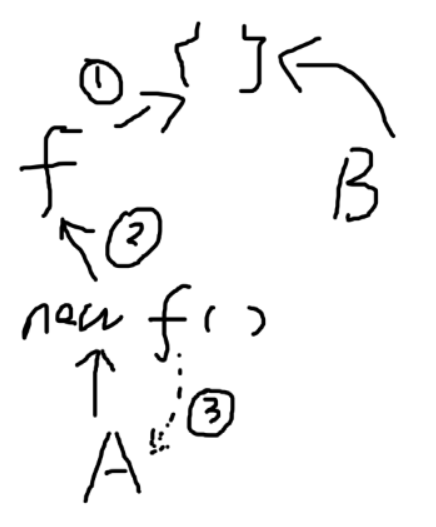 { }
①
f
B
②
new f()
③
A